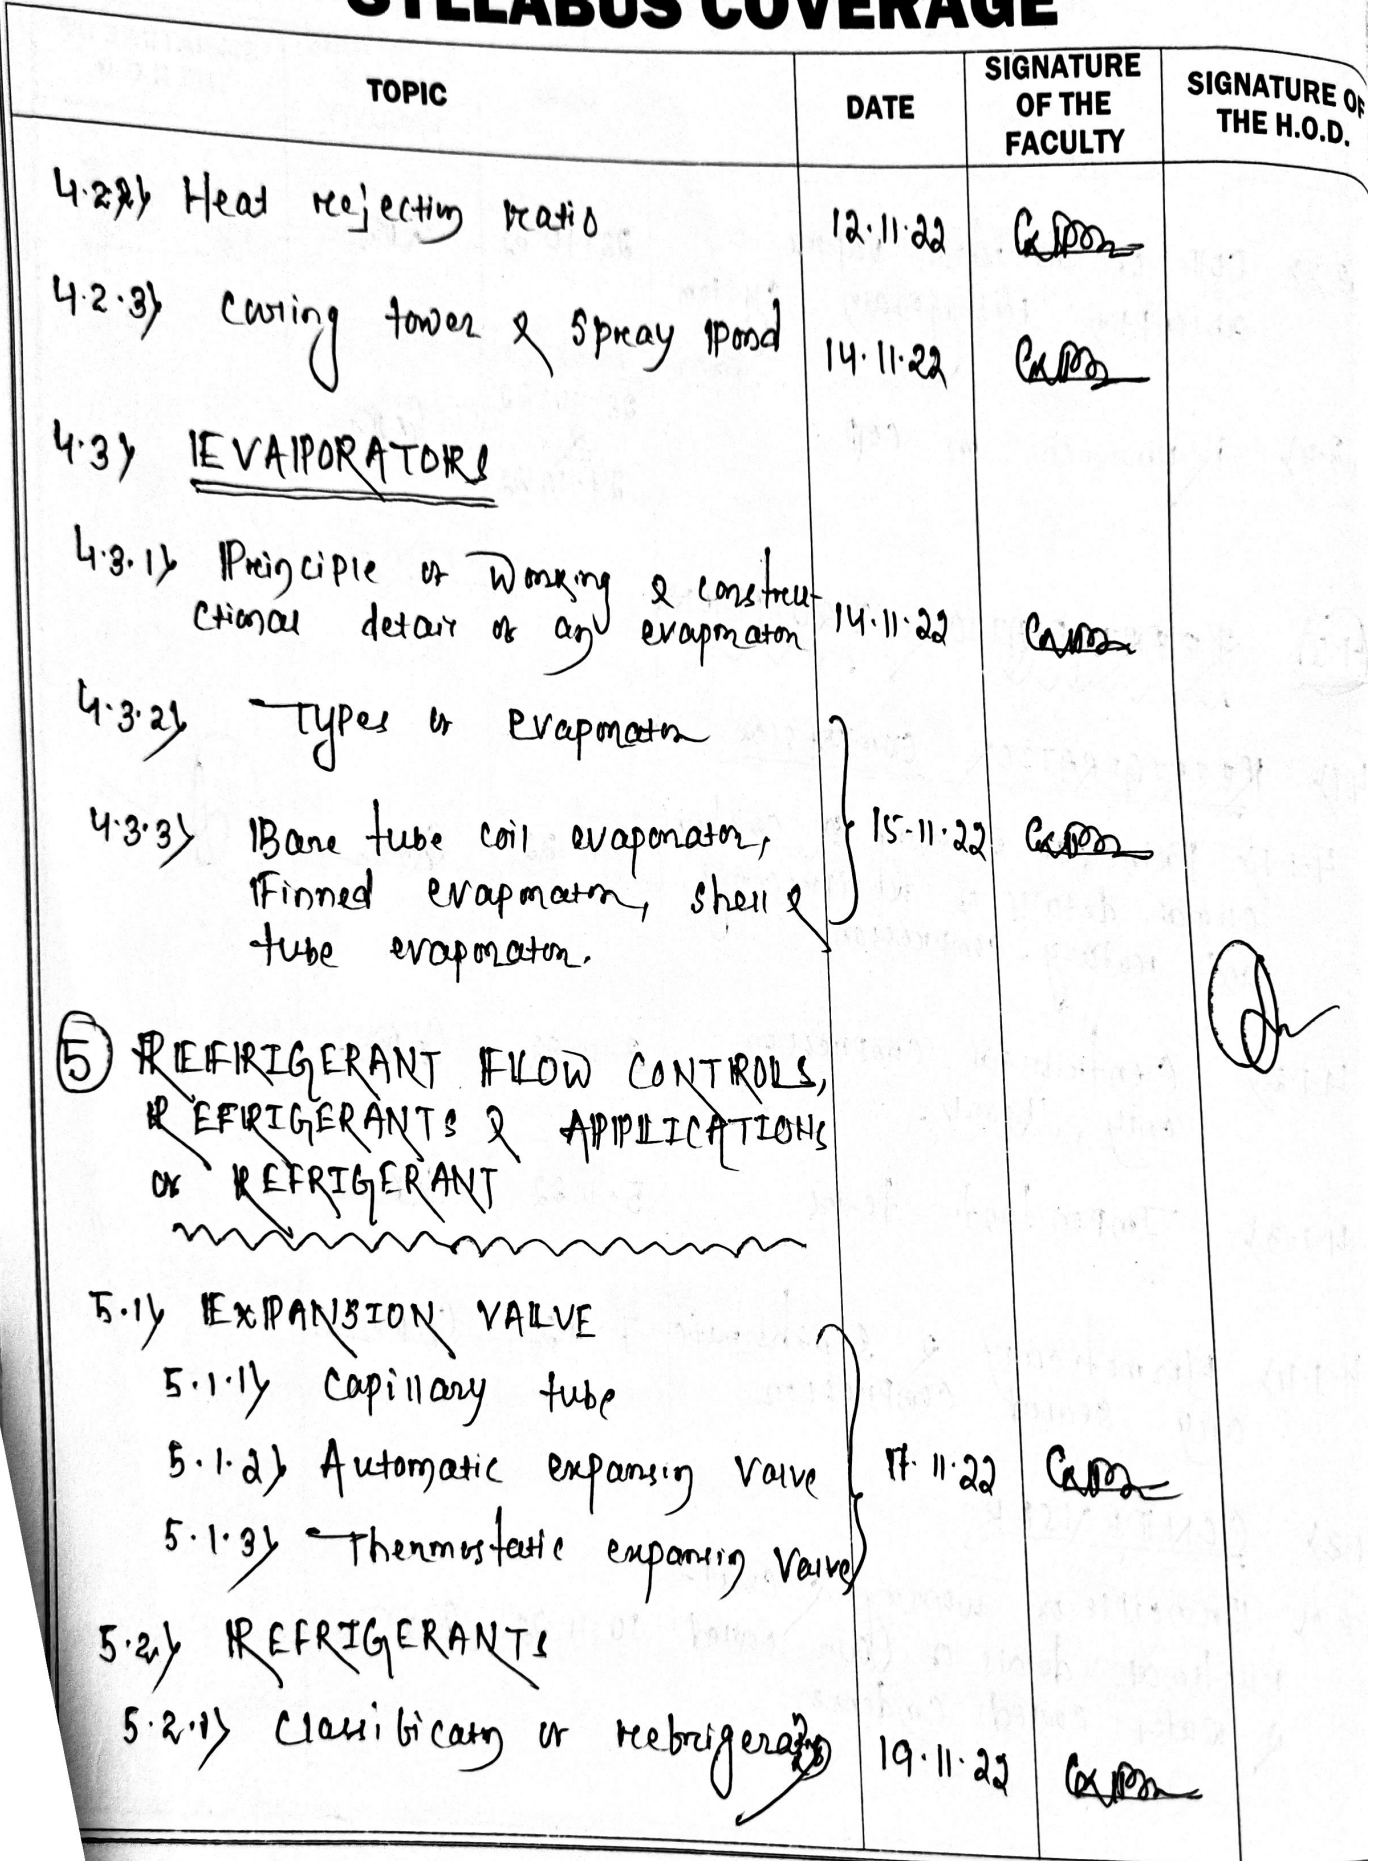 SYLLABUS COVERAGE
TOPIC
DATE
SIGNATURE
OF THE
FACULTY
SIGNATURE OF
THE H.O.D.
4.2.2) Heat rejection ratio 12.11.22
4.2.3) Cooling tower & Spray pond 14.11.22
4.3) EVAPORATORS
4.3.1) Principle of Working & constru-
ctional detail of an evaporator 14.11.22
4.3.2) Types of evaporator
4.3.3) Bare tube coil evaporator, 15-11-22
Finned evaporator, shell &
tube evaporator.
5 REFRIGERANT FLOW CONTROLS,
REFRIGERANTS & APPLICATIONS
of REFRIGERANT
5.1) EXPANSION VALVE
5.1.1) Capillary tube
5.1.2) Automatic expansion valve 17.11.22
5.1.3) Thermostatic expansion valve
5.2) REFRIGERANTS
5.2.1) Classification of refrigerants 19.11.22